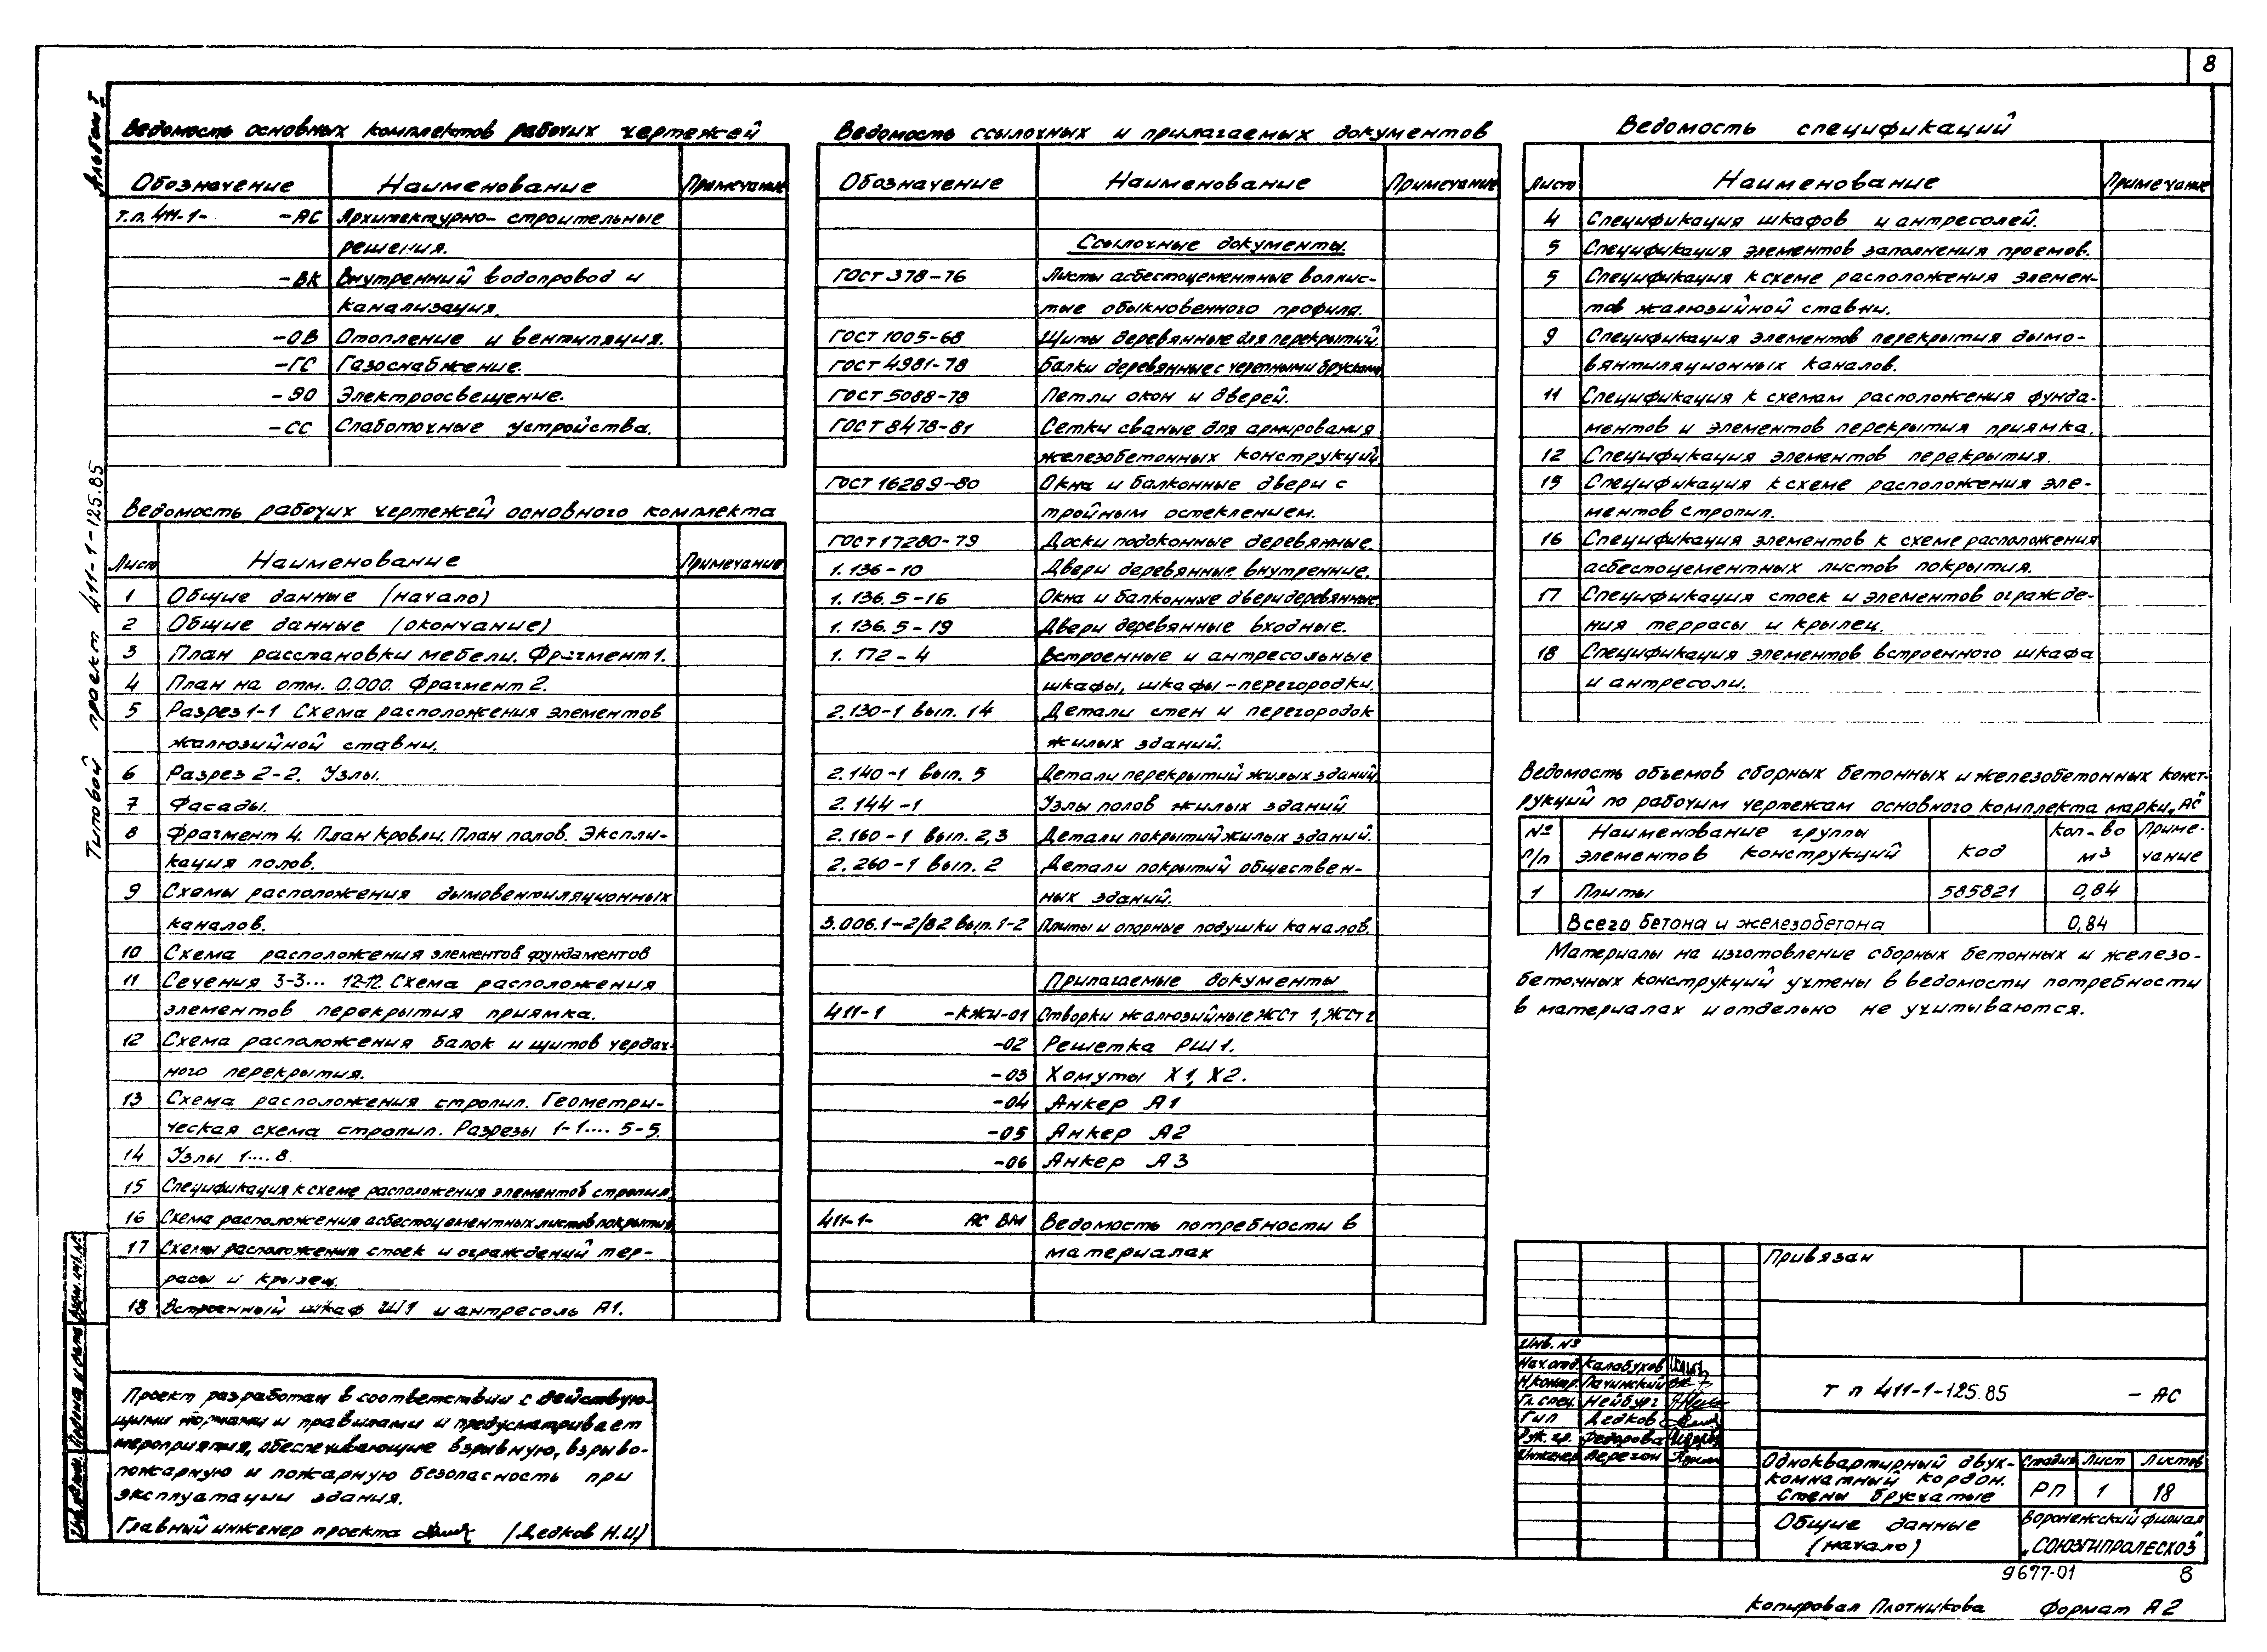 8
Альбом I
Типовой проект 411-1-125.85
Ведомость основных комплектов рабочих чертежей
Обозначение Наименование Примечание
т.п. 411-1- -АС Архитектурно-строительные
решения.
-ВК Внутренний водопровод и
канализация
-ОВ Отопление и вентиляция.
-ГС Газоснабжение.
-ЭО Электроосвещение.
-СС Слаботочные устройства.
Ведомость рабочих чертежей основного комплекта
Лист Наименование Примечание
1 Общие данные (начало)
2 Общие данные (окончание)
3 План расстановки мебели. Фрагмент 1.
4 План на отм. 0.000. Фрагмент 2.
5 Разрез 1-1 Схема расположения элементов
жалюзийной ставни.
6 Разрез 2-2. Узлы.
7 Фасады.
8 Фрагмент 4. План кровли. План полов. Экспли-
кация полов.
9 Схемы расположения дымовентиляционных
каналов.
10 Схема расположения элементов фундаментов
11 Сечения 3-3... 12-12. Схема расположения
элементов перекрытия приямка.
12 Схема расположения балок и щитов чердач-
ного перекрытия.
13 Схема расположения стропил. Геометри-
ческая схема стропил. Разрезы 1-1.... 5-5.
14 Узлы 1.... 8.
15 Спецификация к схеме расположения элементов стропил.
16 Схема расположения асбестоцементных листов покрытия
17 Схемы расположения стоек и ограждений тер-
расы и крылец.
18 Встроенный шкаф Ш1 и антресоль А1.
Проект разработан в соответствии с действую-
щими нормами и правилами и предусматривает
мероприятия, обеспечивающие взрывную, взрыво-
пожарную и пожарную безопасность при
эксплуатации здания.
Главный инженер проекта (Дедков Н.И.)
Ведомость ссылочных и прилагаемых документов
Обозначение Наименование Примечание
Ссылочные документы.
ГОСТ 378-76 Листы асбестоцементные волнис-
тые обыкновенного профиля.
ГОСТ 1005-68 Щиты деревянные для перекрытий.
ГОСТ 4981-78 Балки деревянные с черепными брусками
ГОСТ 5088-78 Петли окон и дверей.
ГОСТ 8478-81 Сетки сваные для армирования
железобетонных конструкций.
ГОСТ 16289-80 Окна и балконные двери с
тройным остеклением.
ГОСТ 17280-79 Доски подоконные деревянные.
1.136-10 Двери деревянные внутренние.
1.136.5-16 Окна и балконные двери деревянные.
1.136.5-19 Двери деревянные входные.
1.172-4 Встроенные и антресольные
шкафы, шкафы-перегородки.
2.130-1 вып. 14 Детали стен и перегородок
жилых зданий.
2.140-1 вып. 5 Детали перекрытий жилых зданий.
2.144-1 Узлы полов жилых зданий.
2.160-1 вып. 2,3 Детали покрытий жилых зданий.
2.260-1 вып. 2 Детали покрытий обществен-
ных зданий.
3.006.1-2/82 вып. 1-2 Плиты и опорные подушки каналов.
Прилагаемые документы
411-1 -КЖИ-01 Створки жалюзийные ЖСт 1, ЖСт 2
-02 Решетка РШ1.
-03 Хомуты Х1, Х2.
-04 Анкер А1
-05 Анкер А2
-06 Анкер А3
411-1- АС ВМ Ведомость потребности в
материалах
Ведомость спецификаций
Лист Наименование Примечание
4 Спецификация шкафов и антресолей.
5 Спецификация элементов заполнения проемов.
5 Спецификация к схеме расположения элемен-
тов жалюзийной ставни.
9 Спецификация элементов перекрытия дымо-
вянтиляционных каналов.
11 Спецификация к схемам расположения фунда-
ментов и элементов перекрытия приямка.
12 Спецификация элементов перекрытия.
15 Спецификация к схеме расположения эле-
ментов стропил.
16 Спецификация элементов к схеме расположения
асбестоцементных листов покрытия.
17 Спецификация стоек и элементов огражде-
ния террасы и крылец.
18 Спецификация элементов встроенного шкафа
и антресоли.
Ведомость объемов сборных бетонных и железобетонных конст-
рукций по рабочим чертежам основного комплекта марки „АС"
№ Наименование группы Кол-во Приме-
п/п элементов конструкций Код м3 чание
1 Плиты 585821 0,84
Всего бетона и железобетона 0,84
Материалы на изготовление сборных бетонных и железо-
бетонных конструкций учтены в ведомости потребности
в материалах и отдельно не учитываются.
Привязан
Инв. №
Нач. отд. Калабухов
Н.контр. Пачинский
Гл. спец. Нейбург
Гип Дедков
Рук. гр. Федорова
Инженер Перегон
т п 411-1-125.85 - АС
Одноквартирный двух-
комнатный кордон.
Стены брусчатые
Стадия Лист Листов
РП 1 18
Общие данные
(начало)
Воронежский филиал
„СОЮЗГИПРОЛЕСХОЗ"
9677-01 8
Копировал Плотникова Формат А2
Инв. № подл. Подпись и дата Взам. инв. №